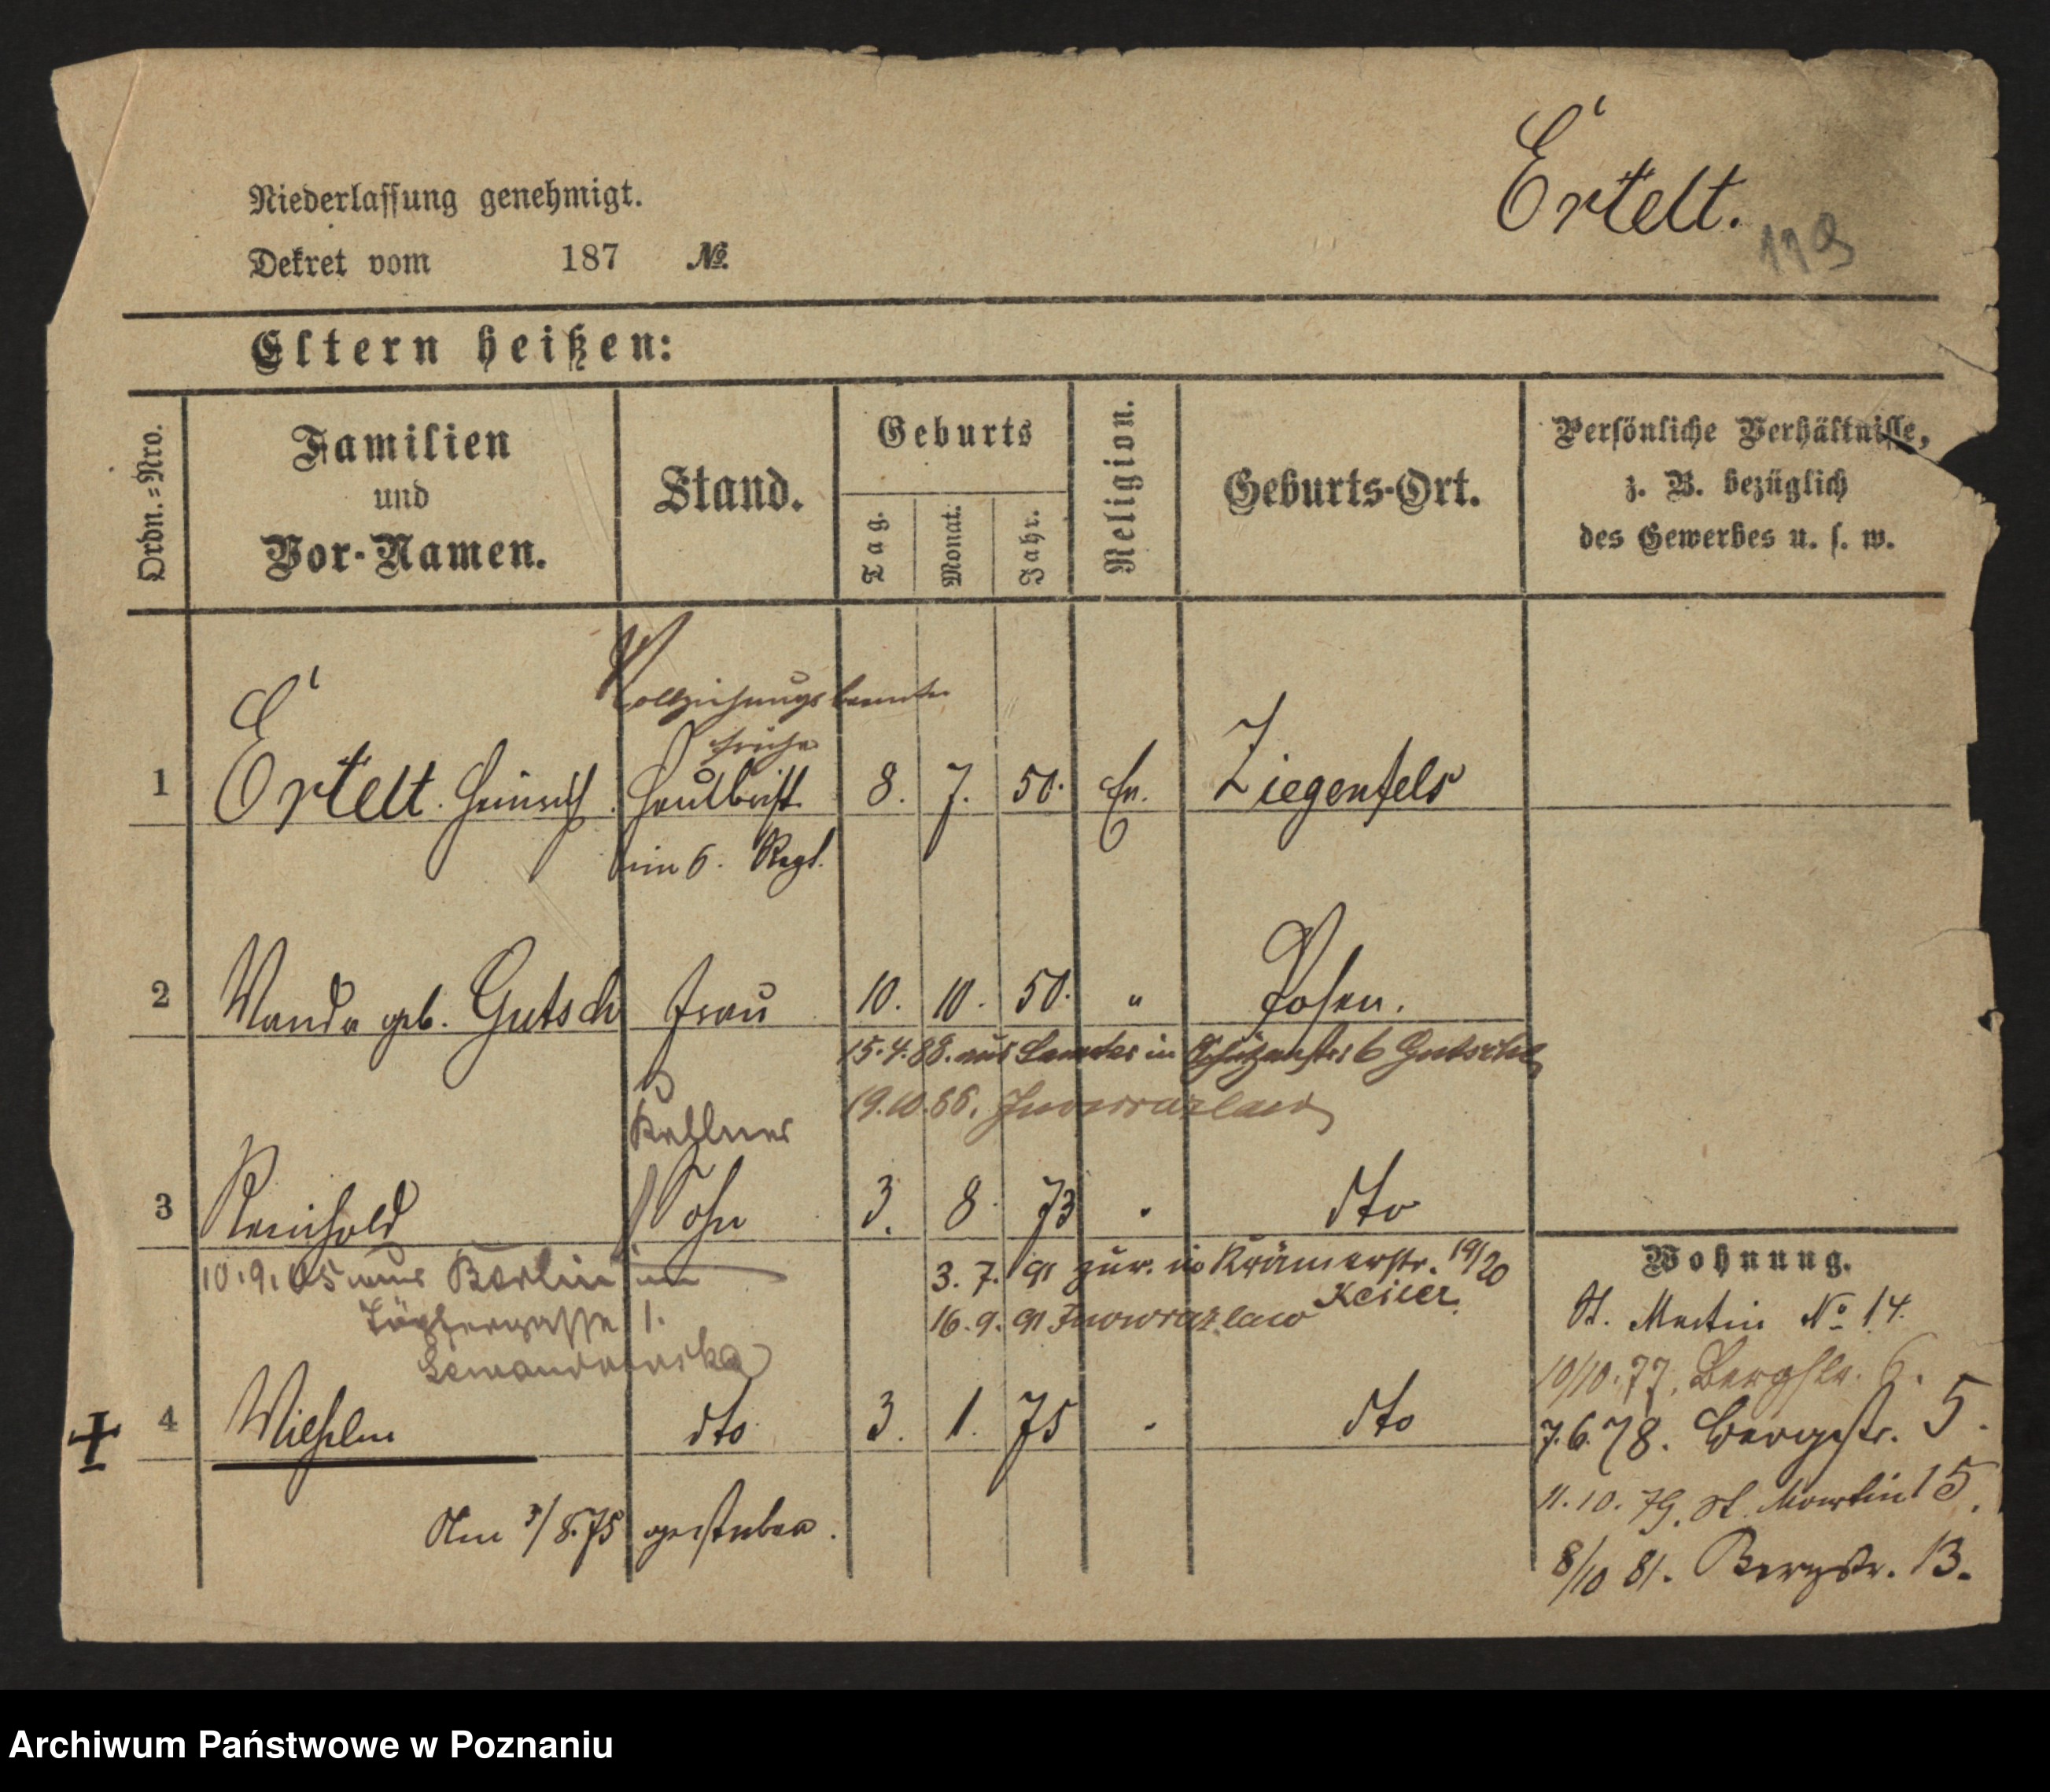 Ertelt.
119
Niederlassung genehmigt.
Dekret vom 187 No.
Eltern heißen:
Ordn.=Nro.
Familien
und
Vor-Namen.
Stand.
Geburts
Tag.
Monat.
Jahr.
Religion.
Geburts-Ort.
Persönliche Verhältnisse,
z. B. bezüglich
des Gewerbes u. s. w.
Vollziehungsbeamter
früher
1 Ertelt. Heinrich. Hautboist 8. 7. 50. Ev. Ziegenfels
im 6. Regt.
2 Wanda geb. Gutsch Frau 10. 10. 50. " Posen.
15.4.88. aus Samter in Schützenstr. 6
19.10.88. Inowrazlaw
Kellner
3 Reinhold Sohn 3. 8. 73 " dto
10.9.05 aus Berlin in
1.
3. 7. 91 zur. in Krämerstr. 19/20
Keiler.
16. 9. 91 Inowrazlaw
4 Wilhelm dto 3. 1. 75 " dto
Am 3/8.75 gestorben.
Wohnung.
St. Martin No 14.
10/10.77. Bergstr. 6.
7.6.78. Bergstr. 5.
11.10.79. St. Martin 15.
8/10 81. Bergstr. 13.
Archiwum Państwowe w Poznaniu